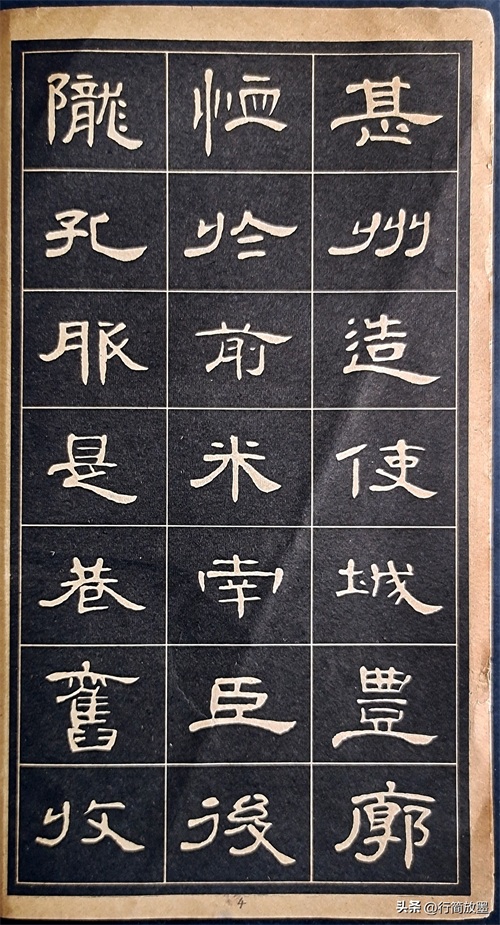 甚州造使城豊廓
恤於前米南臣後
隴孔服是巷舊收
4
头条 @行简放墨